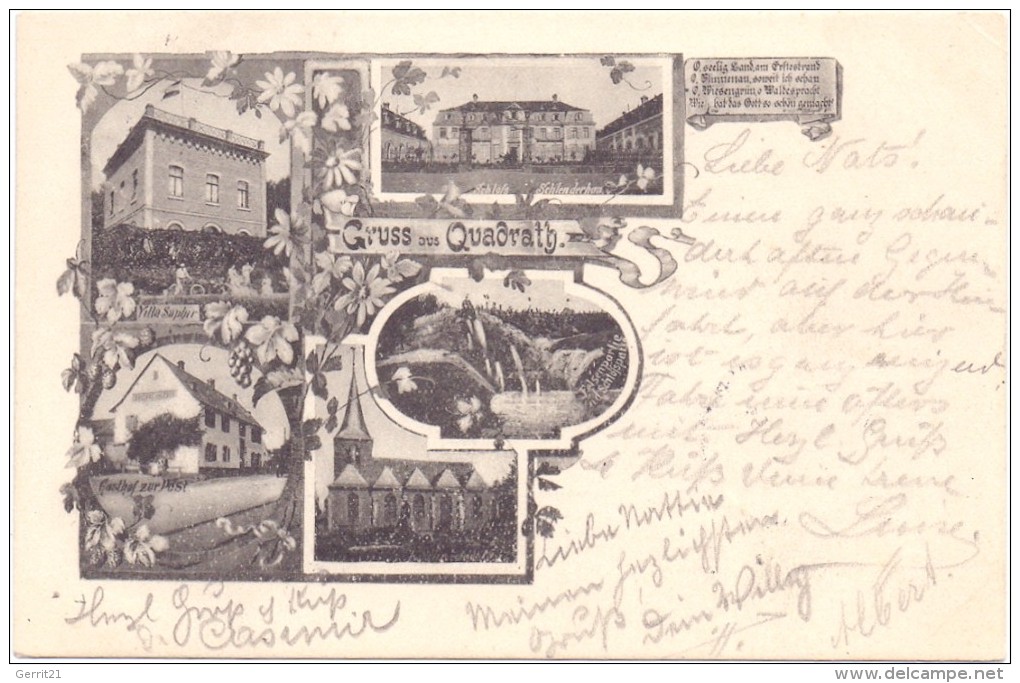 O, seelig Land, am Erftestrand
O, Minnenau, soweit ich schau
O, Wiesengrün, o Waldespracht
Wie hat das Gott so schön gemacht!
Schloss Schlenderhan
Gruss aus Quadrath.
Villa Saphir
Felsenpartie
Gasthof zur Post
Liebe Nats!
Einen ganz schau-
derhaften Gegen-
wind auf der Hin
fahrt, aber hier
ist es ganz reizend
Fahre nur öfters
mit. Herzl. Gruß
& Kuß Deine treue
Luise.
Liebe Nattie
Meinen herzlichsten
Gruß Dein Willy
Albert.
Herzl Gruß & Kuß
D. Casimir
Gerrit21
www.delcampe.net